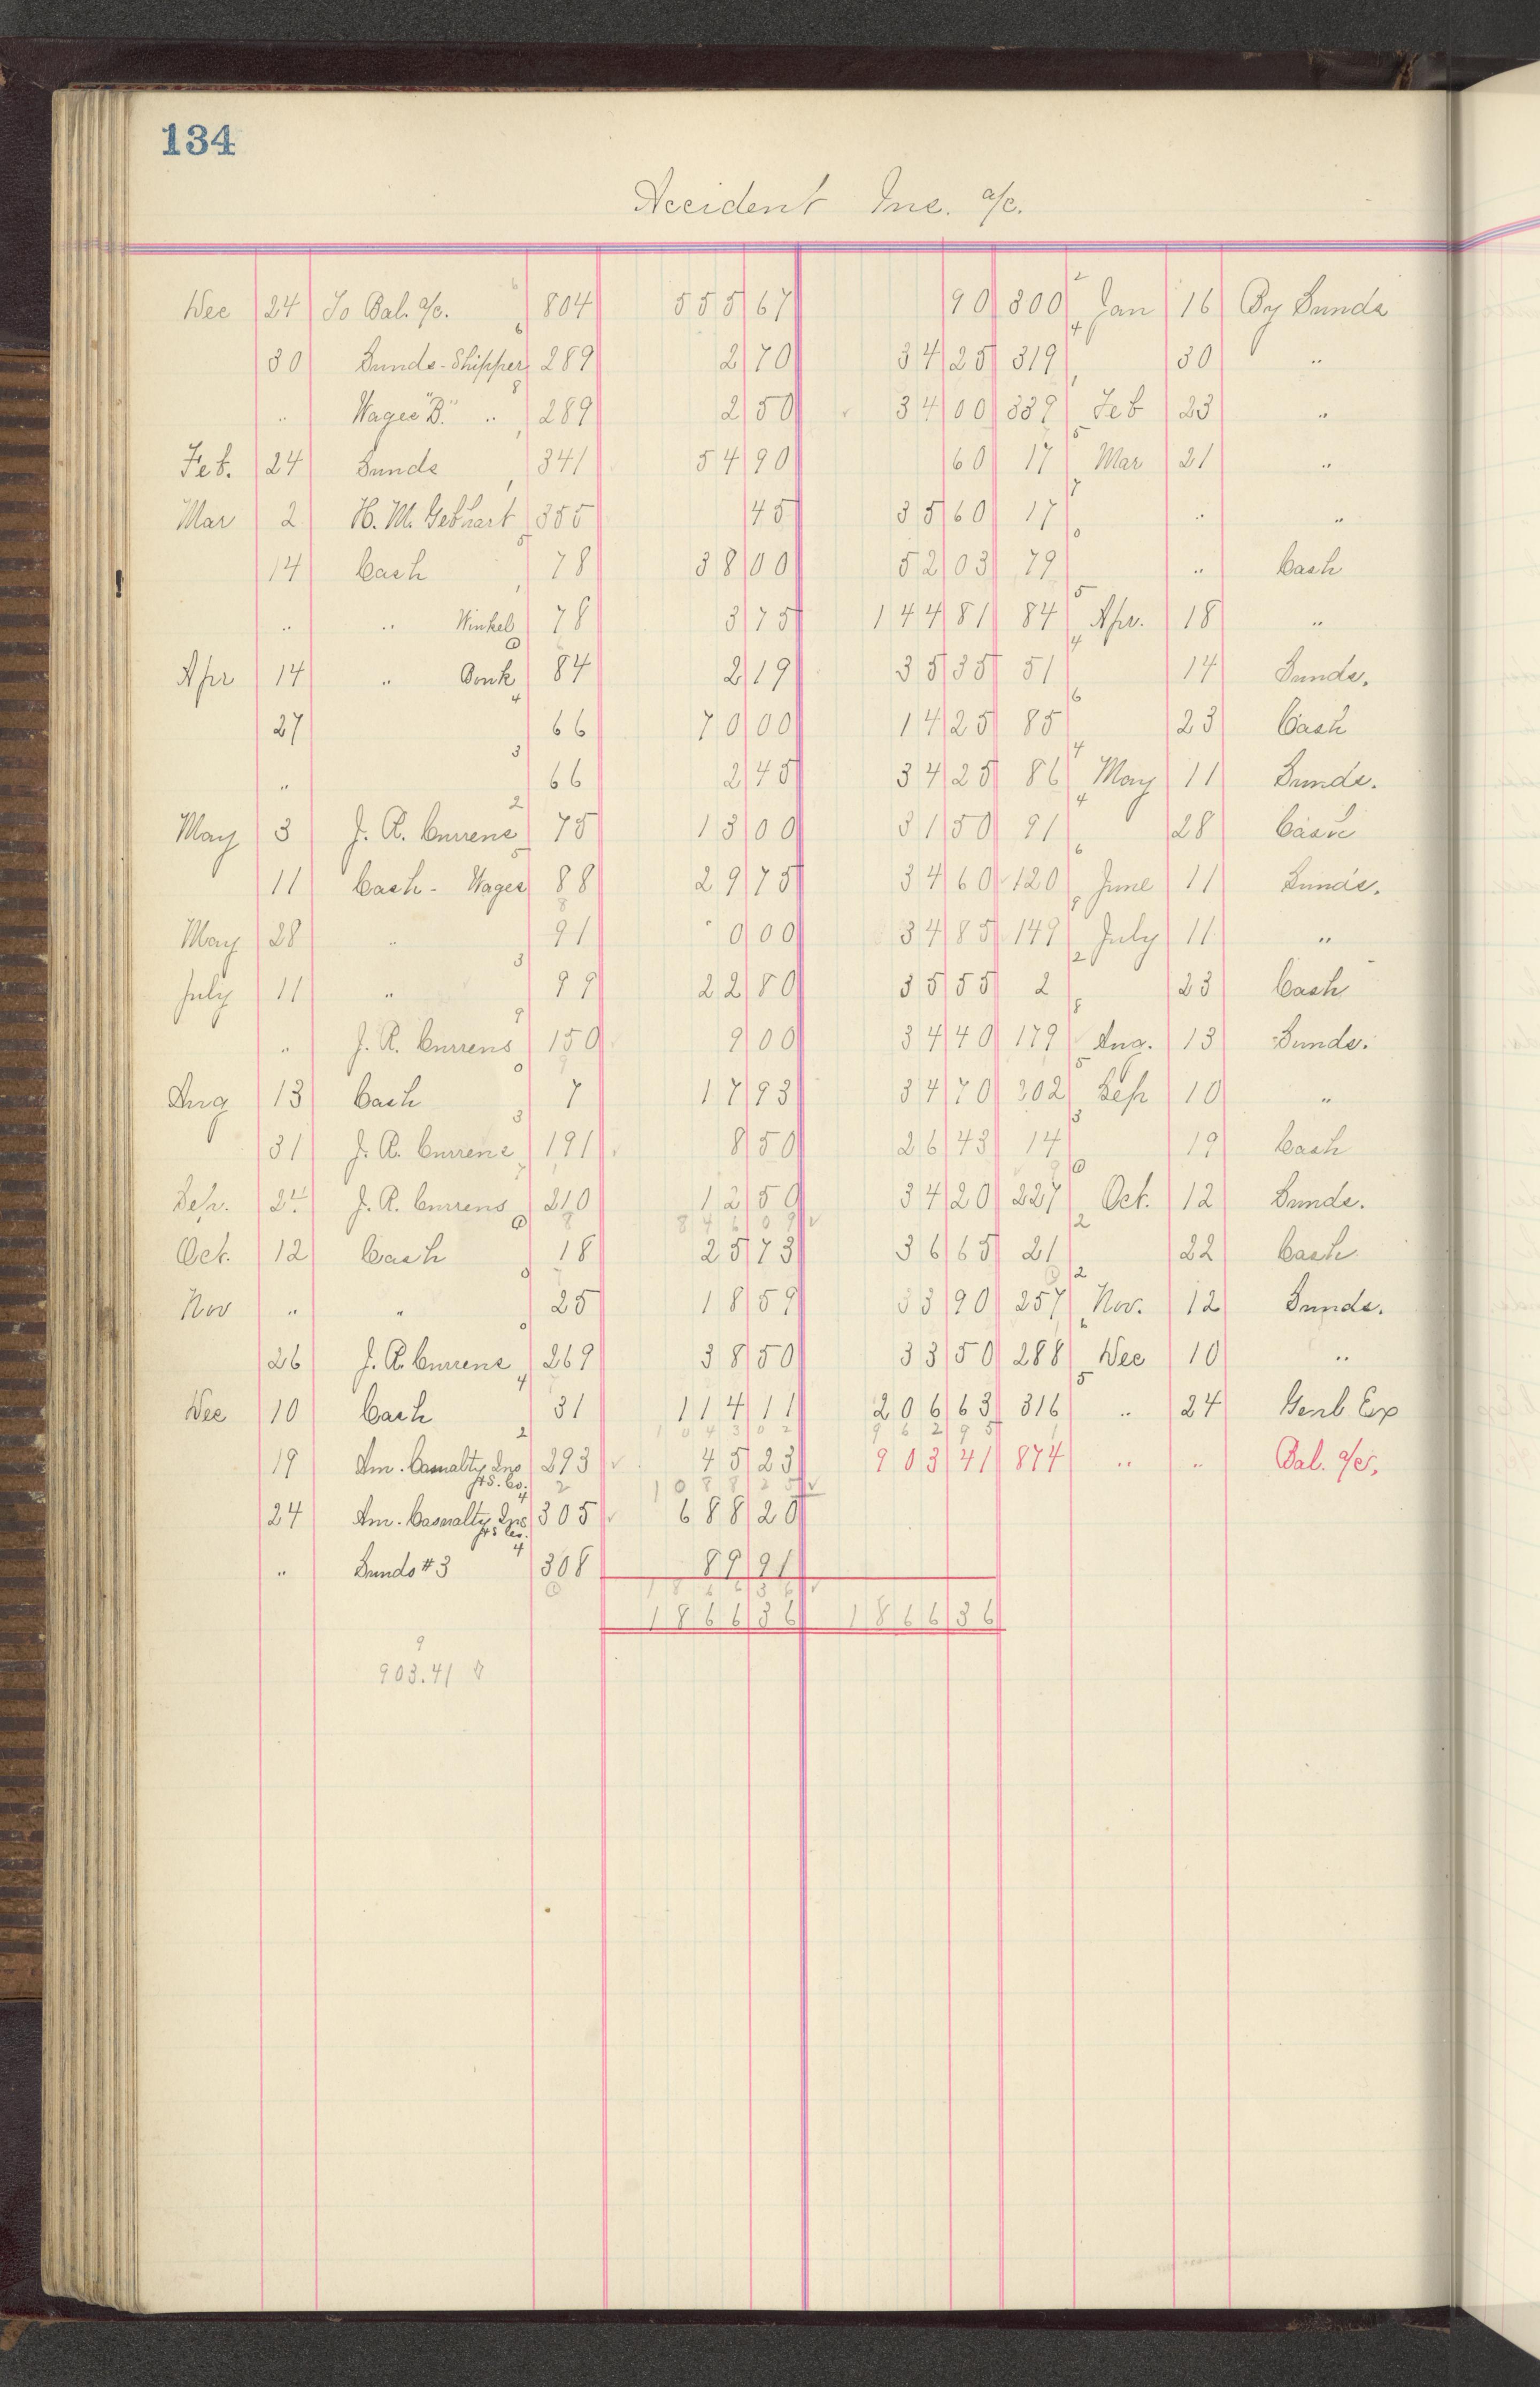 134
Accident Ins. a/c.
Dec 24 To Bal. a/c. 804 555 67 90 300 Jan 16 By Sunds
30 Sunds - Shipper 289 2 70 34 25 319 30 "
" Wages "B." " 289 2 50 34 00 339 Feb 23 "
Feb. 24 Sunds 341 54 90 60 17 Mar 21 "
Mar 2 H. M. Gebhart 355 45 35 60 17 " "
14 Cash 78 38 00 52 03 79 " Cash
" " Winkel 78 3 75 144 81 84 Apr. 18 "
Apr 14 " Bonk 84 2 19 35 35 51 14 Sunds.
27 66 70 00 14 25 85 23 Cash
" 66 2 45 34 25 86 May 11 Sunds.
May 3 J. R. Currens 75 13 00 31 50 91 28 Cash
11 Cash - Wages 88 29 75 34 60 120 June 11 Sunds.
May 28 " 91 9 00 34 85 149 July 11 "
July 11 " 99 22 80 35 55 2 23 Cash
" J. R. Currens 150 9 00 34 40 179 Aug. 13 Sunds.
Aug 13 Cash 7 17 93 34 70 202 Sep 10 "
31 J. R. Currens 191 8 50 26 43 14 19 Cash
Sep. J. R. Currens 210 12 50 34 20 227 Oct. 12 Sunds.
846 09
Oct. 12 Cash 18 25 73 36 65 21 22 Cash
Nov " " 25 18 59 33 90 257 Nov. 12 Sunds.
26 J. R. Currens 269 38 50 33 50 288 Dec 10 "
Dec 10 Cash 31 114 11 206 63 316 " 24 Genl Exp
1043 02 962 95
19 Am. Casualty Ins & S. Co. 293 45 23 903 41 874 " " Bal. a/c.
1088 25
24 Am. Casualty Ins & S Co. 305 688 20
" Sunds # 3 308 89 91
1866 36
1866 36 1866 36
903.41